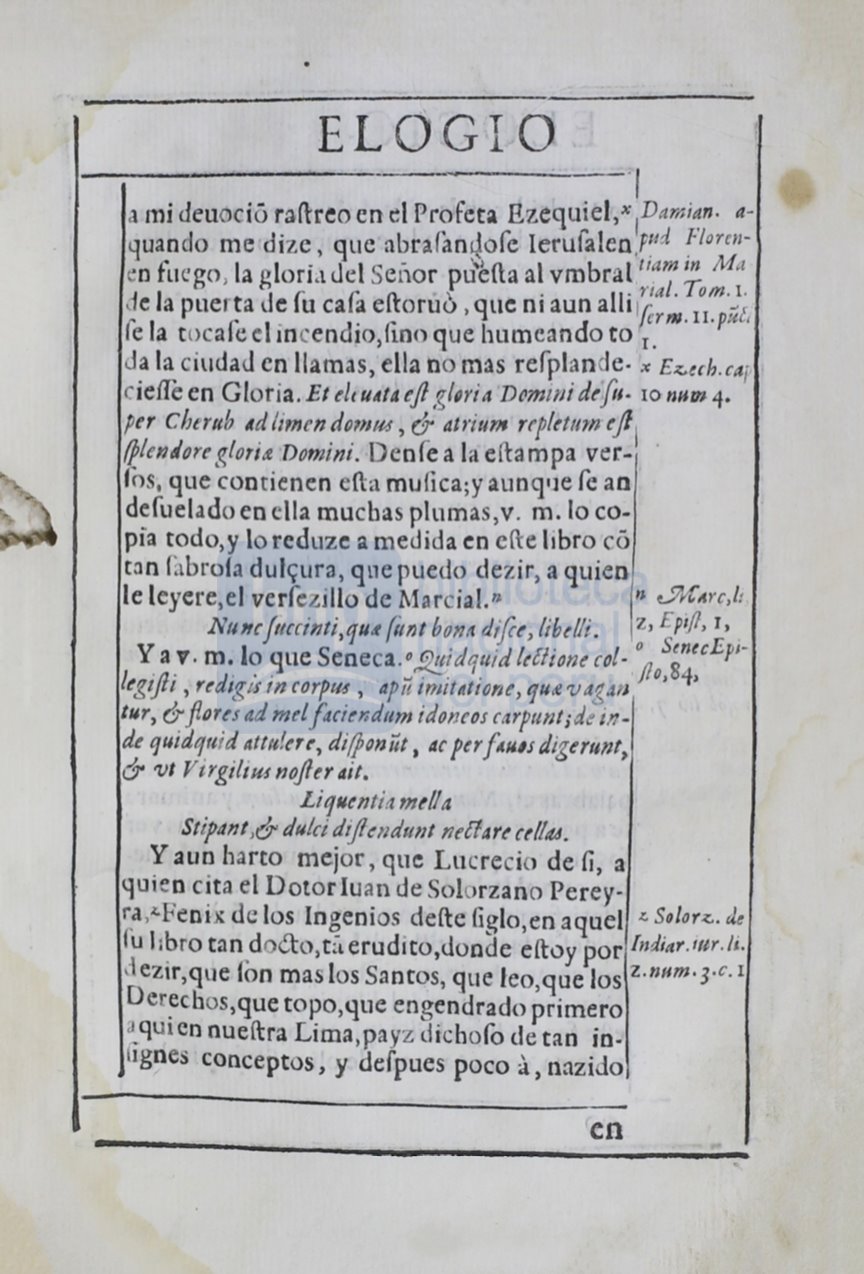 ELOGIO
a mi deuociõ raſtreo en el Profeta Ezequiel,ˣ
quando me dize, que abraſandoſe Ieruſalen
en fuego, la gloria del Señor pueſta al vmbral
de la puerta de ſu caſa eſtoruò, que ni aun alli
ſe la tocaſe el incendio, ſino que humeando to
da la ciudad en llamas, ella no mas reſplande-
cieſſe en Gloria. Et eleuata eſt gloria Domini de ſu-
per Cherub ad limen domus, & atrium repletum eſt
ſplendore gloriæ Domini. Denſe a la eſtampa ver-
ſos, que contienen eſta muſica; y aunque ſe an
deſuelado en ella muchas plumas, v. m. lo co-
pia todo, y lo reduze a medida en eſte libro cõ
tan ſabroſa dulçura, que puedo dezir, a quien
le leyere, el verſezillo de Marcial.ⁿ
Nunc ſuccinti, quæ ſunt bona diſce, libelli.
Y a v. m. lo que Seneca.º Quidquid lectione col-
legiſti, redigis in corpus, apũ imitatione, quæ vagan
tur, & flores ad mel faciendum idoneos carpunt; de in-
de quidquid attulere, diſponũt, ac per fauos digerunt,
& vt Virgilius noſter ait.
Liquentia mella
Stipant, & dulci diſtendunt nectare cellas.
Y aun harto mejor, que Lucrecio de ſi, a
quien cita el Dotor Iuan de Solorzano Perey-
ra,ᶻ Fenix de los Ingenios deſte ſiglo, en aquel
ſu libro tan docto, tã erudito, donde eſtoy por
dezir, que ſon mas los Santos, que leo, que los
Derechos, que topo, que engendrado primero
a quien nueſtra Lima, payz dichoſo de tan in-
ſignes conceptos, y deſpues poco à, nazido
en
Damian. a-
pud Floren-
tiam in Ma
rial. Tom. 1.
ſerm. 11. pũct.
1.
x Ezech. cap
10 num 4.
n Marc, li
2, Epiſt, 1,
o Senec Epi-
ſto, 84,
z Solorz. de
Indiar. iur. li.
2. num. 3. c. 1